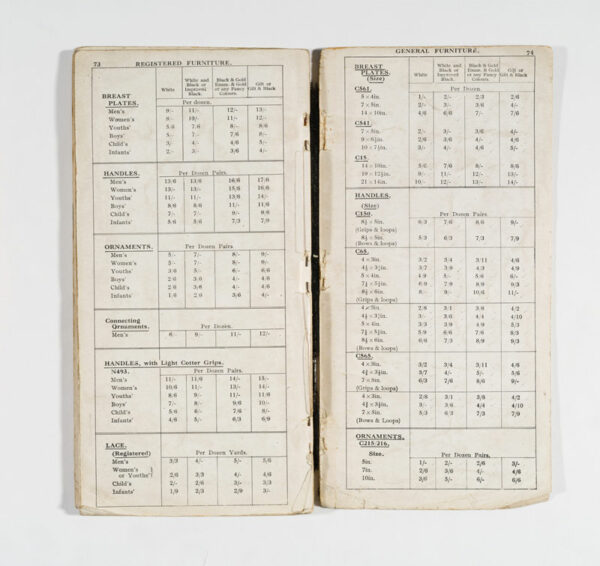 73 REGISTERED FURNITURE.
White White and Black or Improved Black. Black & Gold Enam. & Gold or any Fancy Colours. Gilt or Gilt & Black
BREAST PLATES. Per dozen.
Men's 9/- 11/- 12/- 13/-
Women's 8/- 10/- 11/- 12/-
Youths' 5/6 7/6 8/- 8/6
Boys' 5/- 7/- 7/6 8/-
Child's 3/- 4/- 4/6 5/-
Infants' 2/- 3/- 3/6 4/-
HANDLES. Per Dozen Pairs.
Men's 13/6 13/6 16/6 17/6
Women's 13/- 13/- 15/6 16/6
Youths' 11/- 11/- 13/6 14/-
Boys' 8/6 8/6 11/- 11/6
Child's 7/- 7/- 9/- 9/6
Infants' 5/6 5/6 7/3 7/9
ORNAMENTS. Per Dozen Pairs
Men's 5/- 7/- 8/- 9/-
Women's 5/- 7/- 8/- 9/-
Youths' 3/6 5/- 6/- 6/6
Boys' 2/6 3/6 4/- 4/6
Child's 2/6 3/6 4/- 4/6
Infants' 1/6 2/6 3/6 4/-
Connecting Ornaments. Per Dozen.
Men's 6/- 9/- 11/- 12/-
HANDLES, with Light Cotter Grips.
N495. Per Dozen Pairs.
Men's 11/- 11/6 14/- 15/-
Women's 10/6 11/- 13/- 14/-
Youths' 8/6 9/- 11/- 11/6
Boys' 7/- 8/- 9/6 10/-
Child's 5/6 6/- 7/6 8/-
Infants' 4/6 5/- 6/3 6/9
LACE.
(Registered) Per Dozen Yards.
Men's 3/3 4/- 5/- 5/6
Women's or Youths' } 2/6 3/3 4/- 4/6
Child's 2/- 2/6 3/- 3/3
Infants' 1/9 2/3 2/9 3/-
GENERAL FURNITURE. 74
BREAST PLATES. (Size) White White and Black or Improved Black. Black & Gold Enam. & Gold or any Fancy Colours. Gilt or Gilt & Black
CS61. Per Dozen
8 × 4in. 1/- 2/- 2/3 2/6
7 × 5in. 2/- 3/- 3/6 4/-
14 × 10in. 4/6 6/6 7/- 7/6
CS41.
7 × 5in. 2/- 3/- 3/6 4/-
2/6 3/6 4/- 4/6
3/- 4/- 4/6 5/-
C15.
14 × 10in. 5/6 7/6 8/- 8/6
9/- 11/- 12/- 13/-
21 × 14in. 10/- 12/- 13/- 14/-
HANDLES.
(Size)
C150. Per Dozen Pairs.
8½ × 5in. 6/3 7/6 8/6 9/-
(Grips & loops)
8½ × 5in. 5/3 6/3 7/3 7/9
(Bows & loops)
C65.
4 × 3in. 3/2 3/4 3/11 4/6
4½ × 3½in. 3/7 3/9 4/3 4/9
5 × 4in. 4/9 5/- 5/6 6/-
7½ × 5½in. 6/9 7/9 8/9 9/3
8½ × 6in. 8/- 9/- 10/6 11/-
(Grips & loops)
4 × 3in. 2/8 3/1 3/8 4/2
4½ × 3½in. 3/- 3/6 4/4 4/10
5 × 4in. 3/3 3/9 4/9 5/3
7½ × 5½in. 5/9 6/6 7/6 8/3
8½ × 6in. 6/6 7/3 8/9 9/3
(Bows & loops)
CS65.
4 × 3in. 3/2 3/4 3/11 4/6
4½ × 3½in. 3/7 4/- 5/- 5/6
7 × 5in. 6/3 7/6 8/6 9/-
(Grips & loops)
4 × 3in. 2/8 3/1 3/6 4/2
4½ × 3½in. 3/- 3/6 4/4 4/10
7 × 5in. 5/3 6/3 7/3 7/9
(Bows & loops)
ORNAMENTS.
C215/216.
Size. Per Dozen Pairs.
5in. 1/- 2/- 2/6 3/-
7in. 2/6 3/6 4/- 4/6
10in. 3/6 5/- 6/- 6/6